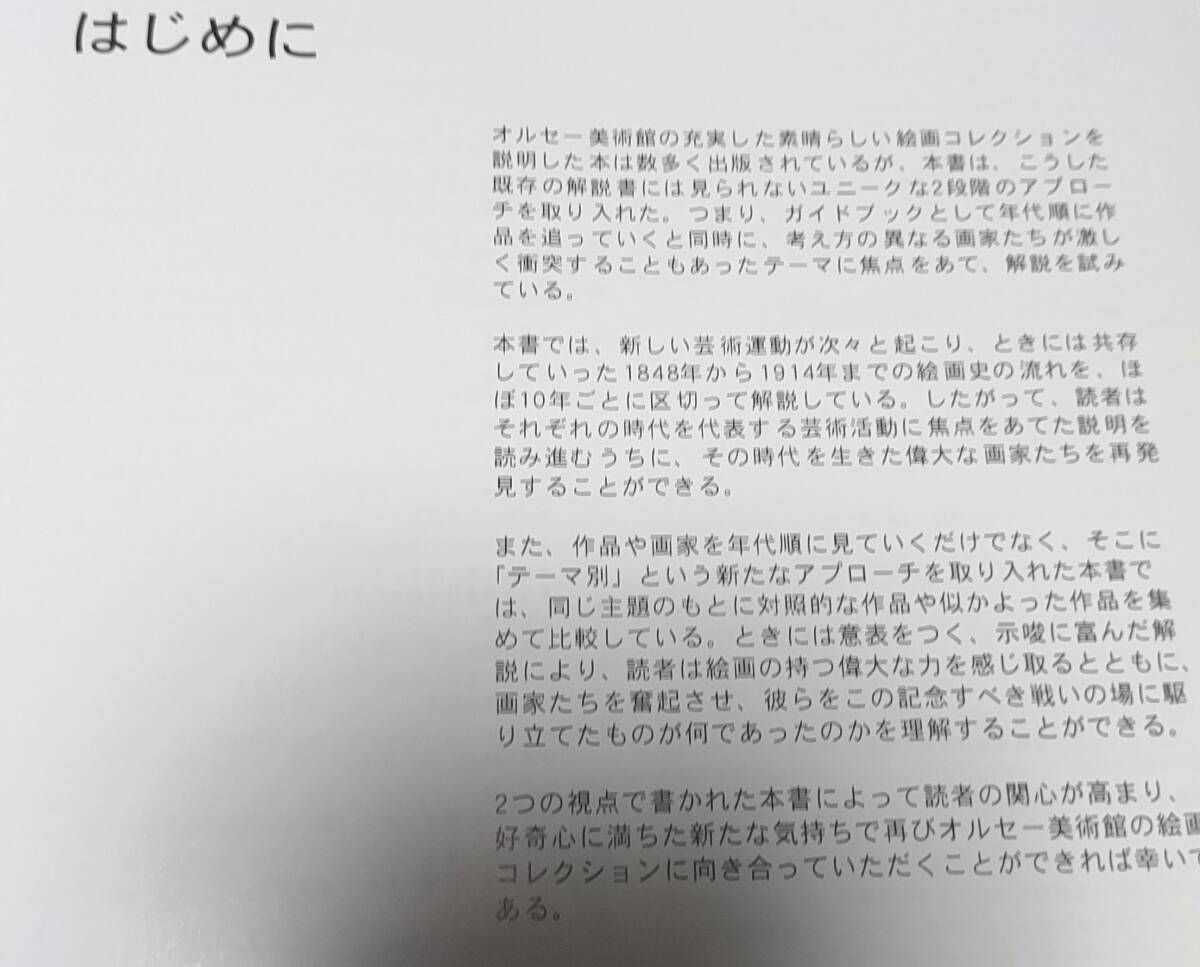 はじめに
オルセー美術館の充実した素晴らしい絵画コレクションを
説明した本は数多く出版されているが、本書は、こうした
既存の解説書には見られないユニークな2段階のアプロー
チを取り入れた。つまり、ガイドブックとして年代順に作
品を追っていくと同時に、考え方の異なる画家たちが激し
く衝突することもあったテーマに焦点をあて、解説を試み
ている。
本書では、新しい芸術運動が次々と起こり、ときには共存
していった1848年から1914年までの絵画史の流れを、ほ
ぼ10年ごとに区切って解説している。したがって、読者は
それぞれの時代を代表する芸術活動に焦点をあてた説明を
読み進むうちに、その時代を生きた偉大な画家たちを再発
見することができる。
また、作品や画家を年代順に見ていくだけでなく、そこに
「テーマ別」という新たなアプローチを取り入れた本書で
は、同じ主題のもとに対照的な作品や似かよった作品を集
めて比較している。ときには意表をつく、示唆に富んだ解
説により、読者は絵画の持つ偉大な力を感じ取るとともに、
画家たちを奮起させ、彼らをこの記念すべき戦いの場に駆
り立てたものが何であったのかを理解することができる。
2つの視点で書かれた本書によって読者の関心が高まり、
好奇心に満ちた新たな気持ちで再びオルセー美術館の絵画
コレクションに向き合っていただくことができれば幸いで
ある。